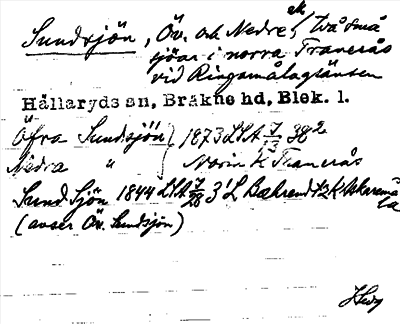 Sundsjön, Öv. och Nedre, Två små
sjöar i norra Tranerås
vid Ringamålagränsen
Hällaryds sn, Bräkne hd, Blek. l.
Öfra Sundsjön } 1873 LSA 7/13 38²
Nedra " } Norin k Tranerås
Sund Sjön 1844 LSA 7/28 3 L Bæhrendtz k
(avser Öv. Sundsjön)